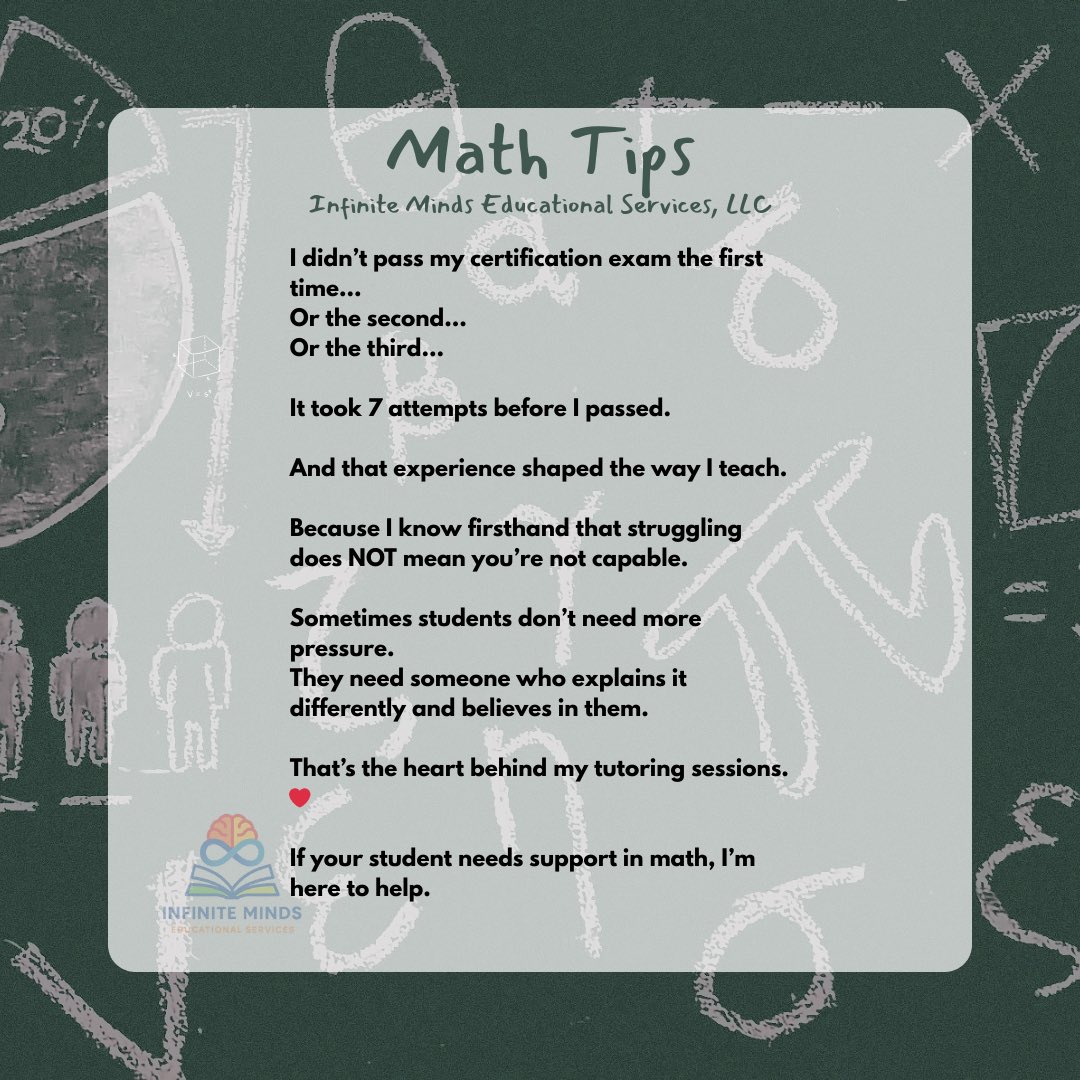 20%
Math Tips
Infinite Minds Educational Services, LLC
I didn’t pass my certification exam the first
time...
Or the second...
Or the third...
It took 7 attempts before I passed.
And that experience shaped the way I teach.
Because I know firsthand that struggling
does NOT mean you’re not capable.
Sometimes students don’t need more
pressure.
They need someone who explains it
differently and believes in them.
That’s the heart behind my tutoring sessions.
❤️
If your student needs support in math, I’m
here to help.
INFINITE MINDS
EDUCATIONAL SERVICES